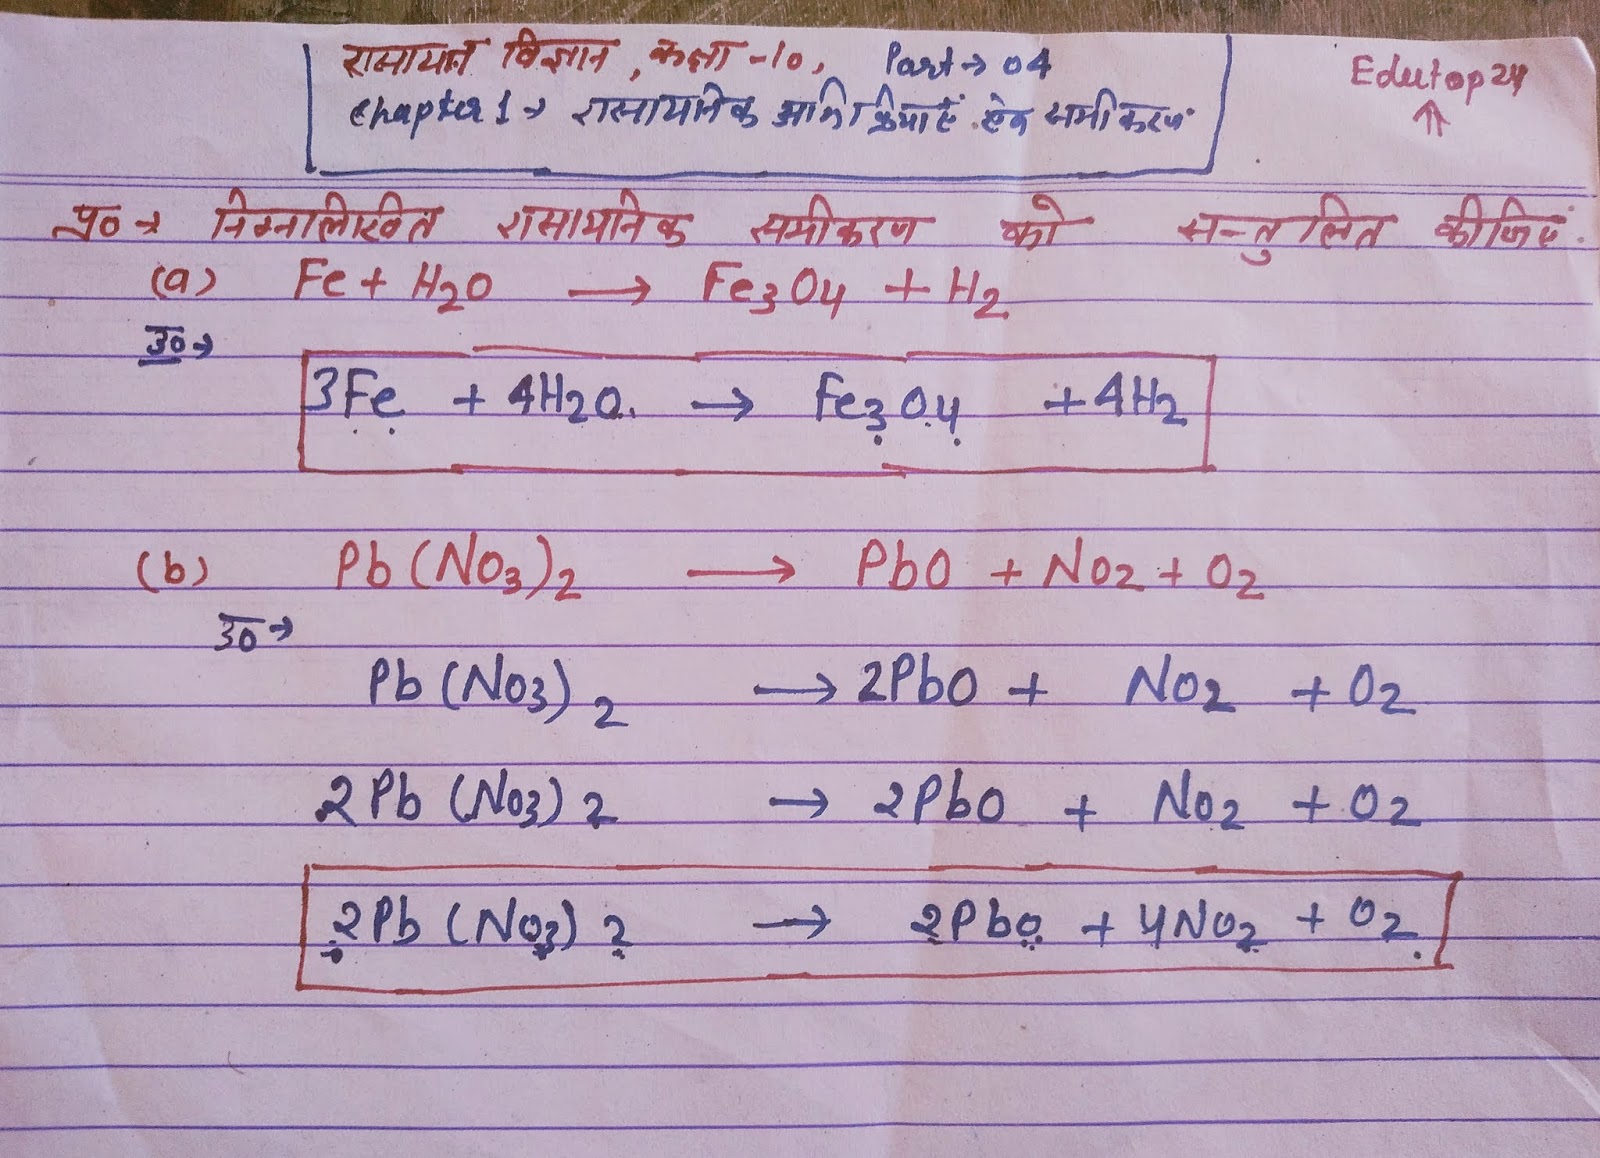 रासायन विज्ञान, कक्षा -10, Part→ 04
Edutop24
Chapter 1→ रासायनिक अभिक्रियाएं एवं समीकरण
प्र०→ निम्नलिखित रासायनिक समीकरण को सन्तुलित कीजिए.
(a) Fe + H2O → Fe3O4 + H2
उ०→
3Fe + 4H2O → Fe3O4 + 4H2
(b) Pb(NO3)2 → PbO + NO2 + O2
उ०→
Pb(NO3)2 → 2PbO + NO2 + O2
2Pb(NO3)2 → 2PbO + NO2 + O2
2Pb(NO3)2 → 2PbO + 4NO2 + O2